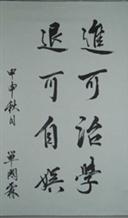 進可治學
退可自娛
甲申秋月
單國霖